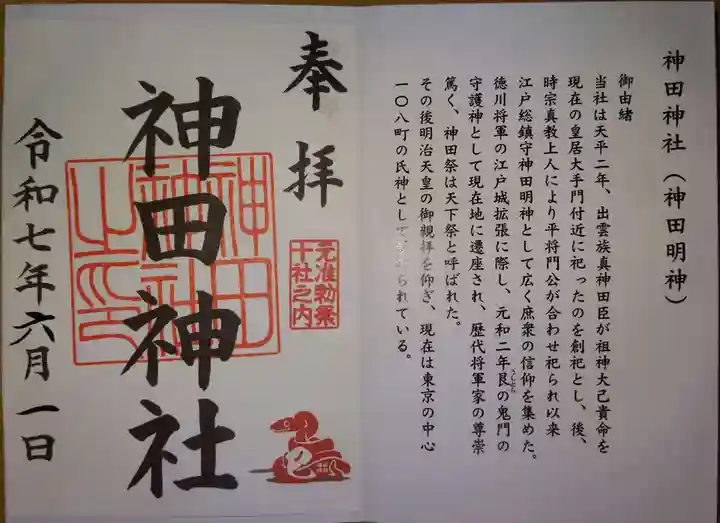 神田神社（神田明神）
御由緒
当社は天平二年、出雲族真神田臣が祖神大己貴命を
現在の皇居大手門付近に祀ったのを創祀とし、後、
時宗真教上人により平将門公が合わせ祀られ以来
江戸総鎮守神田明神として広く庶衆の信仰を集めた。
徳川将軍の江戸城拡張に際し、元和二年艮の鬼門の
うしとら
守護神として現在地に遷座され、歴代将軍家の尊崇
篤く、神田祭は天下祭と呼ばれた。
その後明治天皇の御親拝を仰ぎ、現在は東京の中心
一〇八町の氏神として られている。
奉拝
元准勅祭
十社之内
神田神社
神田
神社
之印
令和七年六月一日